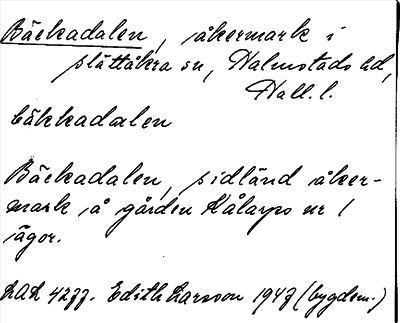 Bäckadalen, åkermark i
Slättåkra sn, Halmstads hd,
Hall. l.
bäkkadalen
Bäckadalen, sidländ åker-
mark å gården Hålarps nr 1
ägor.
LAL 4277. Edith Larsson 1947 (bygdem.)